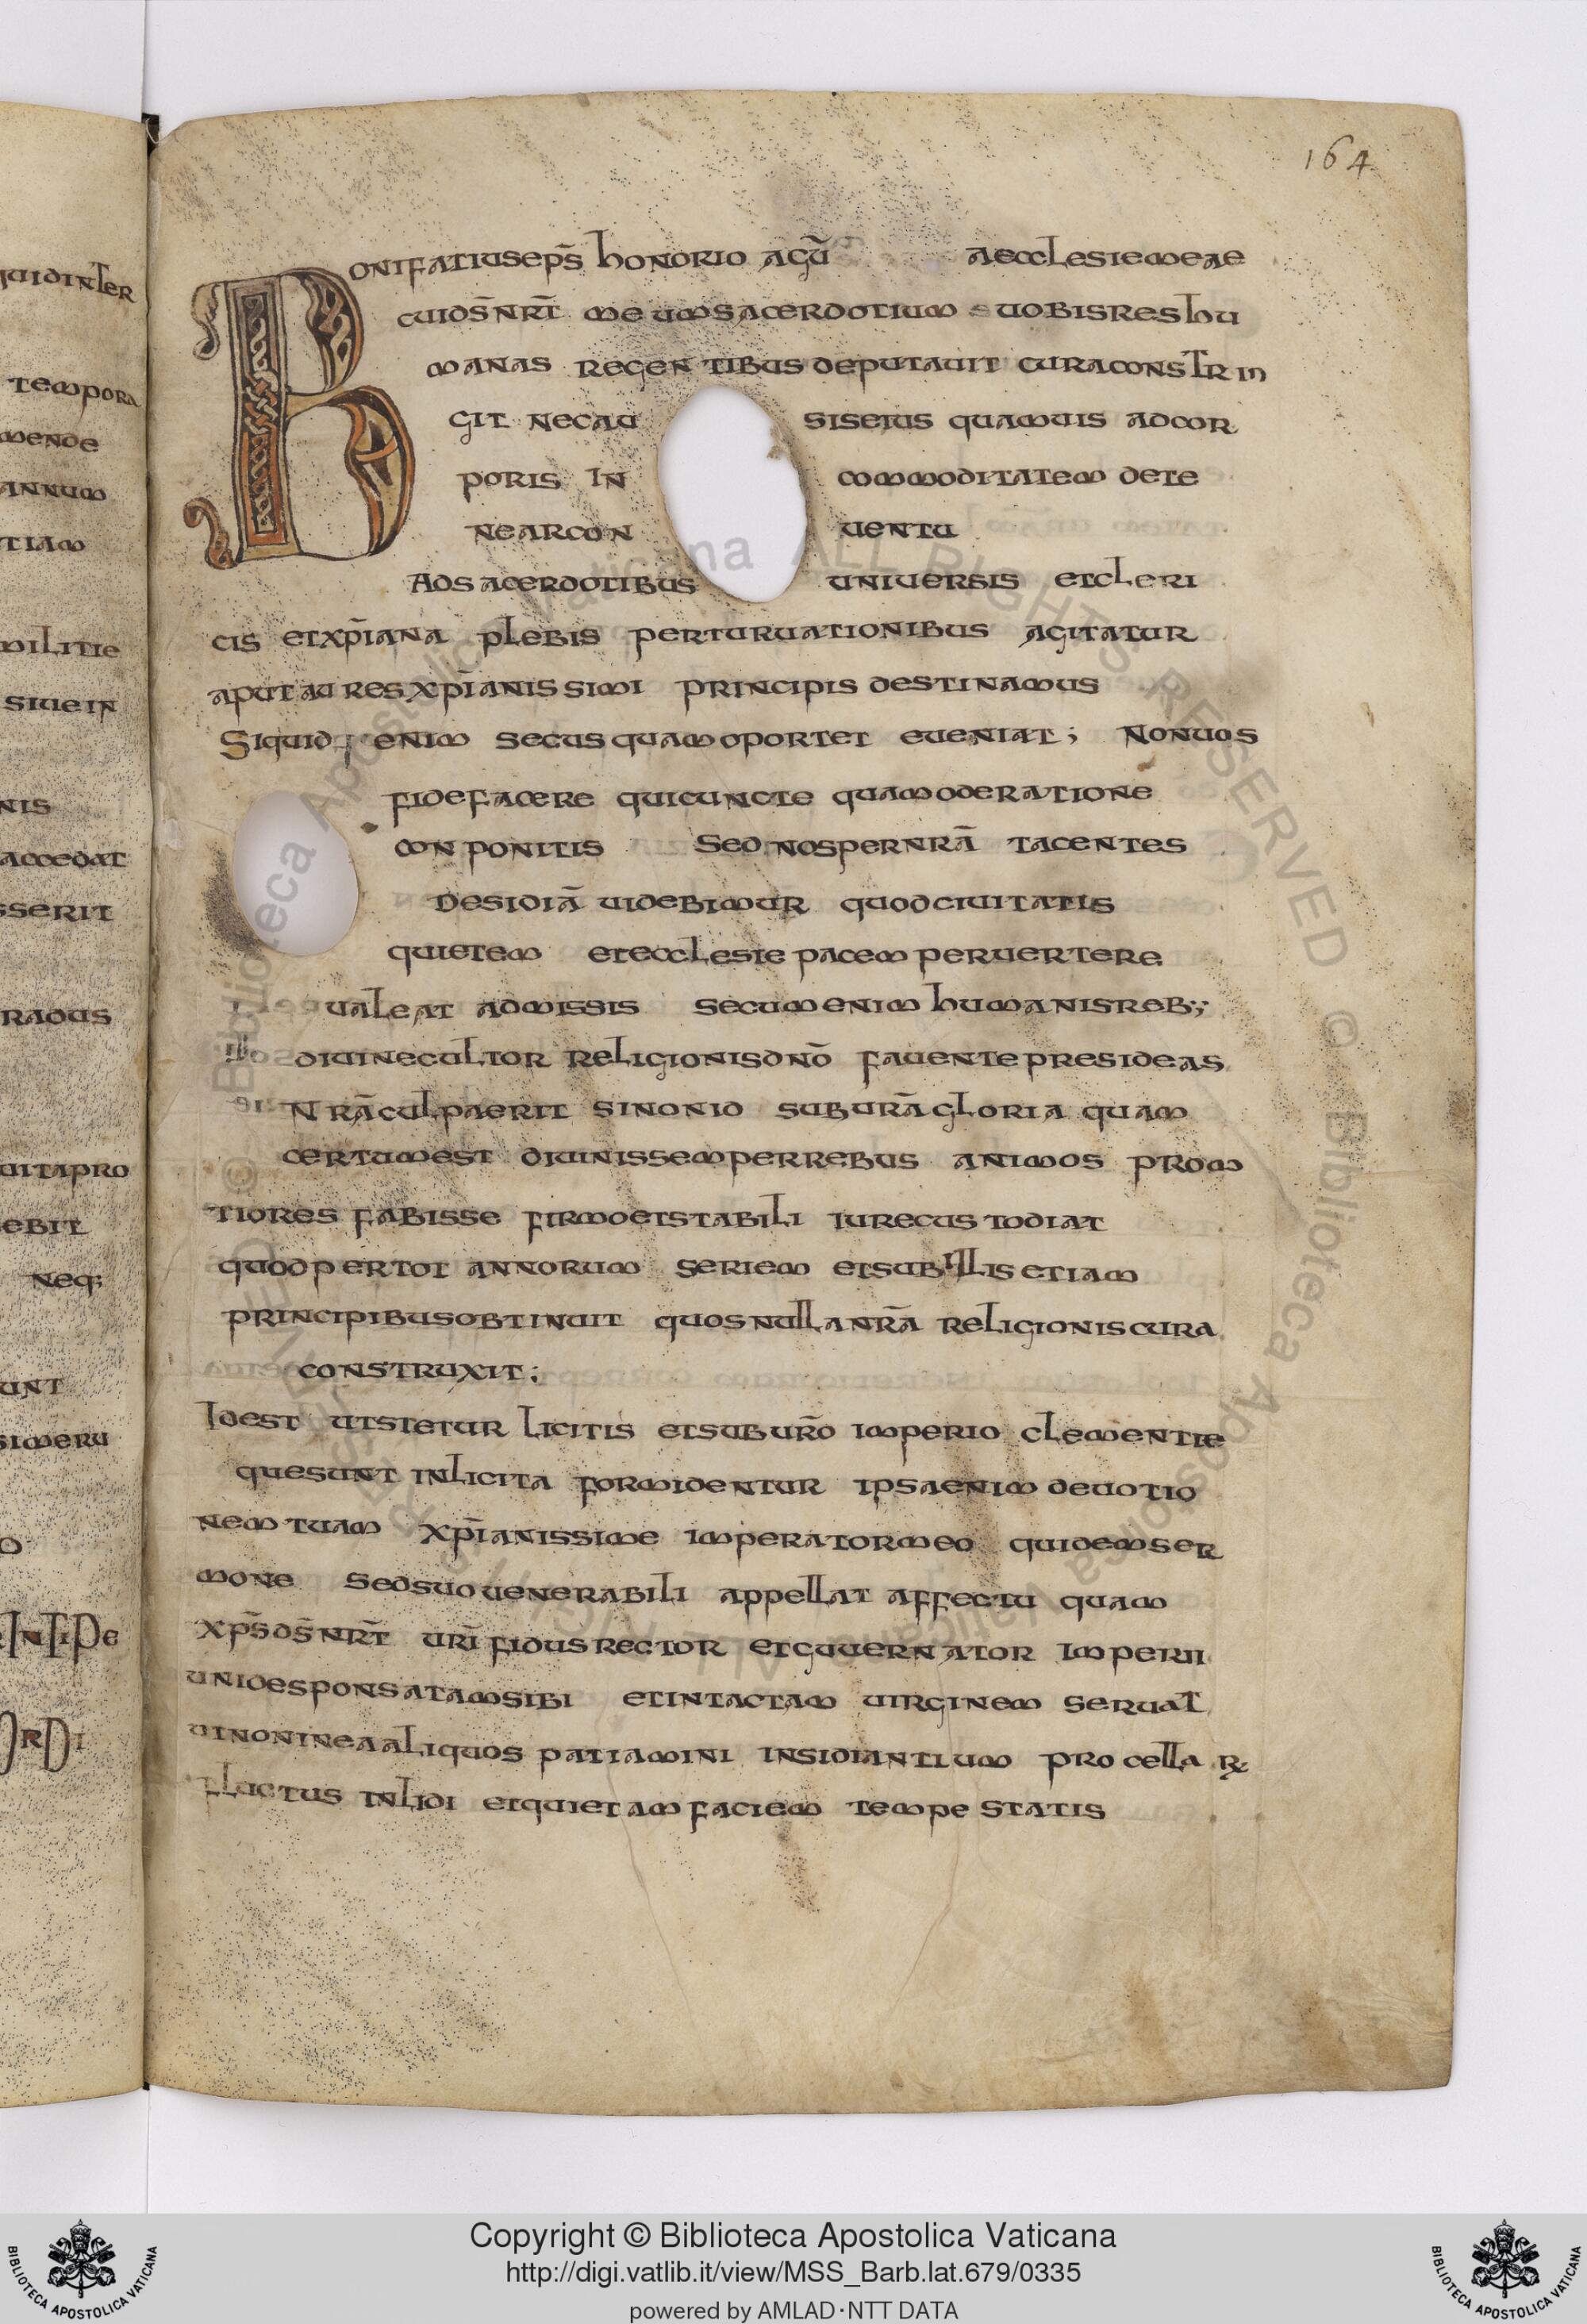 164
BONIFATIUSEP̄S HONORIO AGŪ AECCLESIEMEAE
CUIDS̄NR̄I MEUMSACERDOTIUM UOBISRESHU
MANAS REGENTIBUS DEPUTAUIT CURACONSTRIN
GIT NECAU SISEIUS QUAMUIS ADCOR
PORIS IN COMMODITATEM DETE
NEARCON UENTU
ADSACERDOTIBUS UNIUERSIS ETCLERI
CIS ETXP̄IANA PLEBIS PERTURUATIONIBUS AGITATUR
APUTAURES XP̄IANISSIMI PRINCIPIS DESTINAMUS
SIQUID ENIM SECUSQUAMOPORTET EUENIAT; NONUOS
FIDEFACERE QUICUNCTE QUAMODERATIONE
CONPONITIS SEDNOSPERNRĀ TACENTES
DESIDIĀ UIDEBIMUR QUODCIUITATIS
QUIETEM ETECCLESIE PACEM PERUERTERE
UALEAT ADMISSIS SECUMENIM HUMANISREB;;
DIUINECULTOR RELIGIONISDNŌ FAUENTEPRESIDEAS
NRĀCULPAERIT SINONID SUBURĀGLORIA QUAM
CERTUMEST DIUINISSEMPERREBUS ANIMOS PROM
TIORES FABISSE FIRMOETSTABILI IURECUSTODIAT
QUODPERTOT ANNORUM SERIEM ETSUBILLIS ETIAM
PRINCIPIBUSOBTINUIT QUOSNULLANRĀ RELIGIONISCURA
CONSTRUXIT;
IDEST UTSTETUR LICITIS ETSUBUR̄O IMPERIO CLEMENTIE
QUESUNT INLICITA FORMIDENTUR IPSAENIM DEUOTIO
NEMTUAM XP̄IANISSIME IMPERATORMEO QUIDEMSER
MONE SEDSUOUENERABILI APPELLAT AFFECTU QUAM
XP̄SDS̄NR̄I URĪ FIDUSRECTOR ETGUUERNATOR IMPERII
UNIDESPONSATAMSIBI ETINTACTAM UIRGINEM SERUAT
UINONINEAALIQUOS PATIAMINI INSIDIANTIUM PROCELLARꝜ
FLUCTUS INLIDI ETQUIETAMFACIEM TEMPESTATIS
QUIDINTER
TEMPORA
MENDE
ANNUM
TIAM
MILITIE
SIUEIN
NIS
ACCEDAT
SSERIT
RADUS
UITAPRO
EBIT
NEQ;
UNT
SIMERU
Copyright © Biblioteca Apostolica Vaticana
http://digi.vatlib.it/view/MSS_Barb.lat.679/0335
powered by AMLAD·NTT DATA
BIBLIOTECA APOSTOLICA VATICANA
BIBLIOTECA APOSTOLICA VATICANA
© Biblioteca Apostolica Vaticana ALL RIGHTS RESERVED